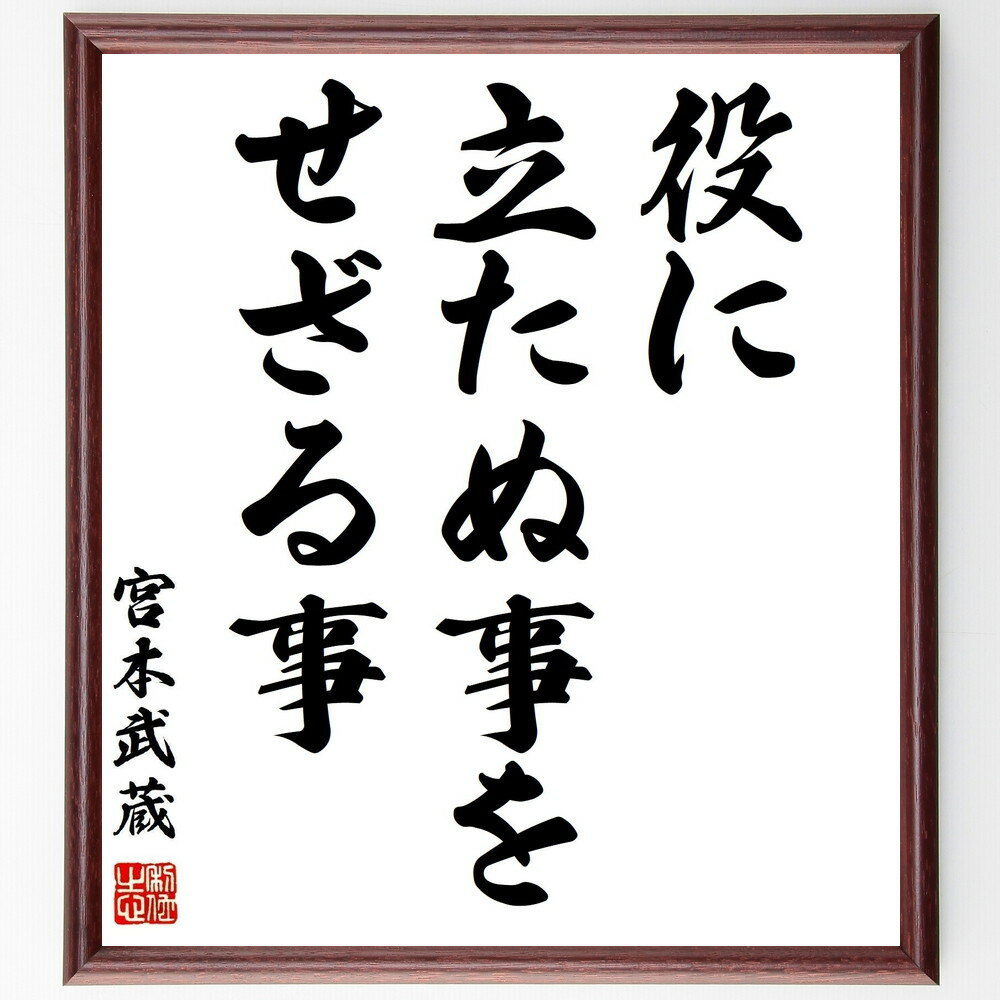 役に
立たぬ事を
せざる事
宮本武蔵